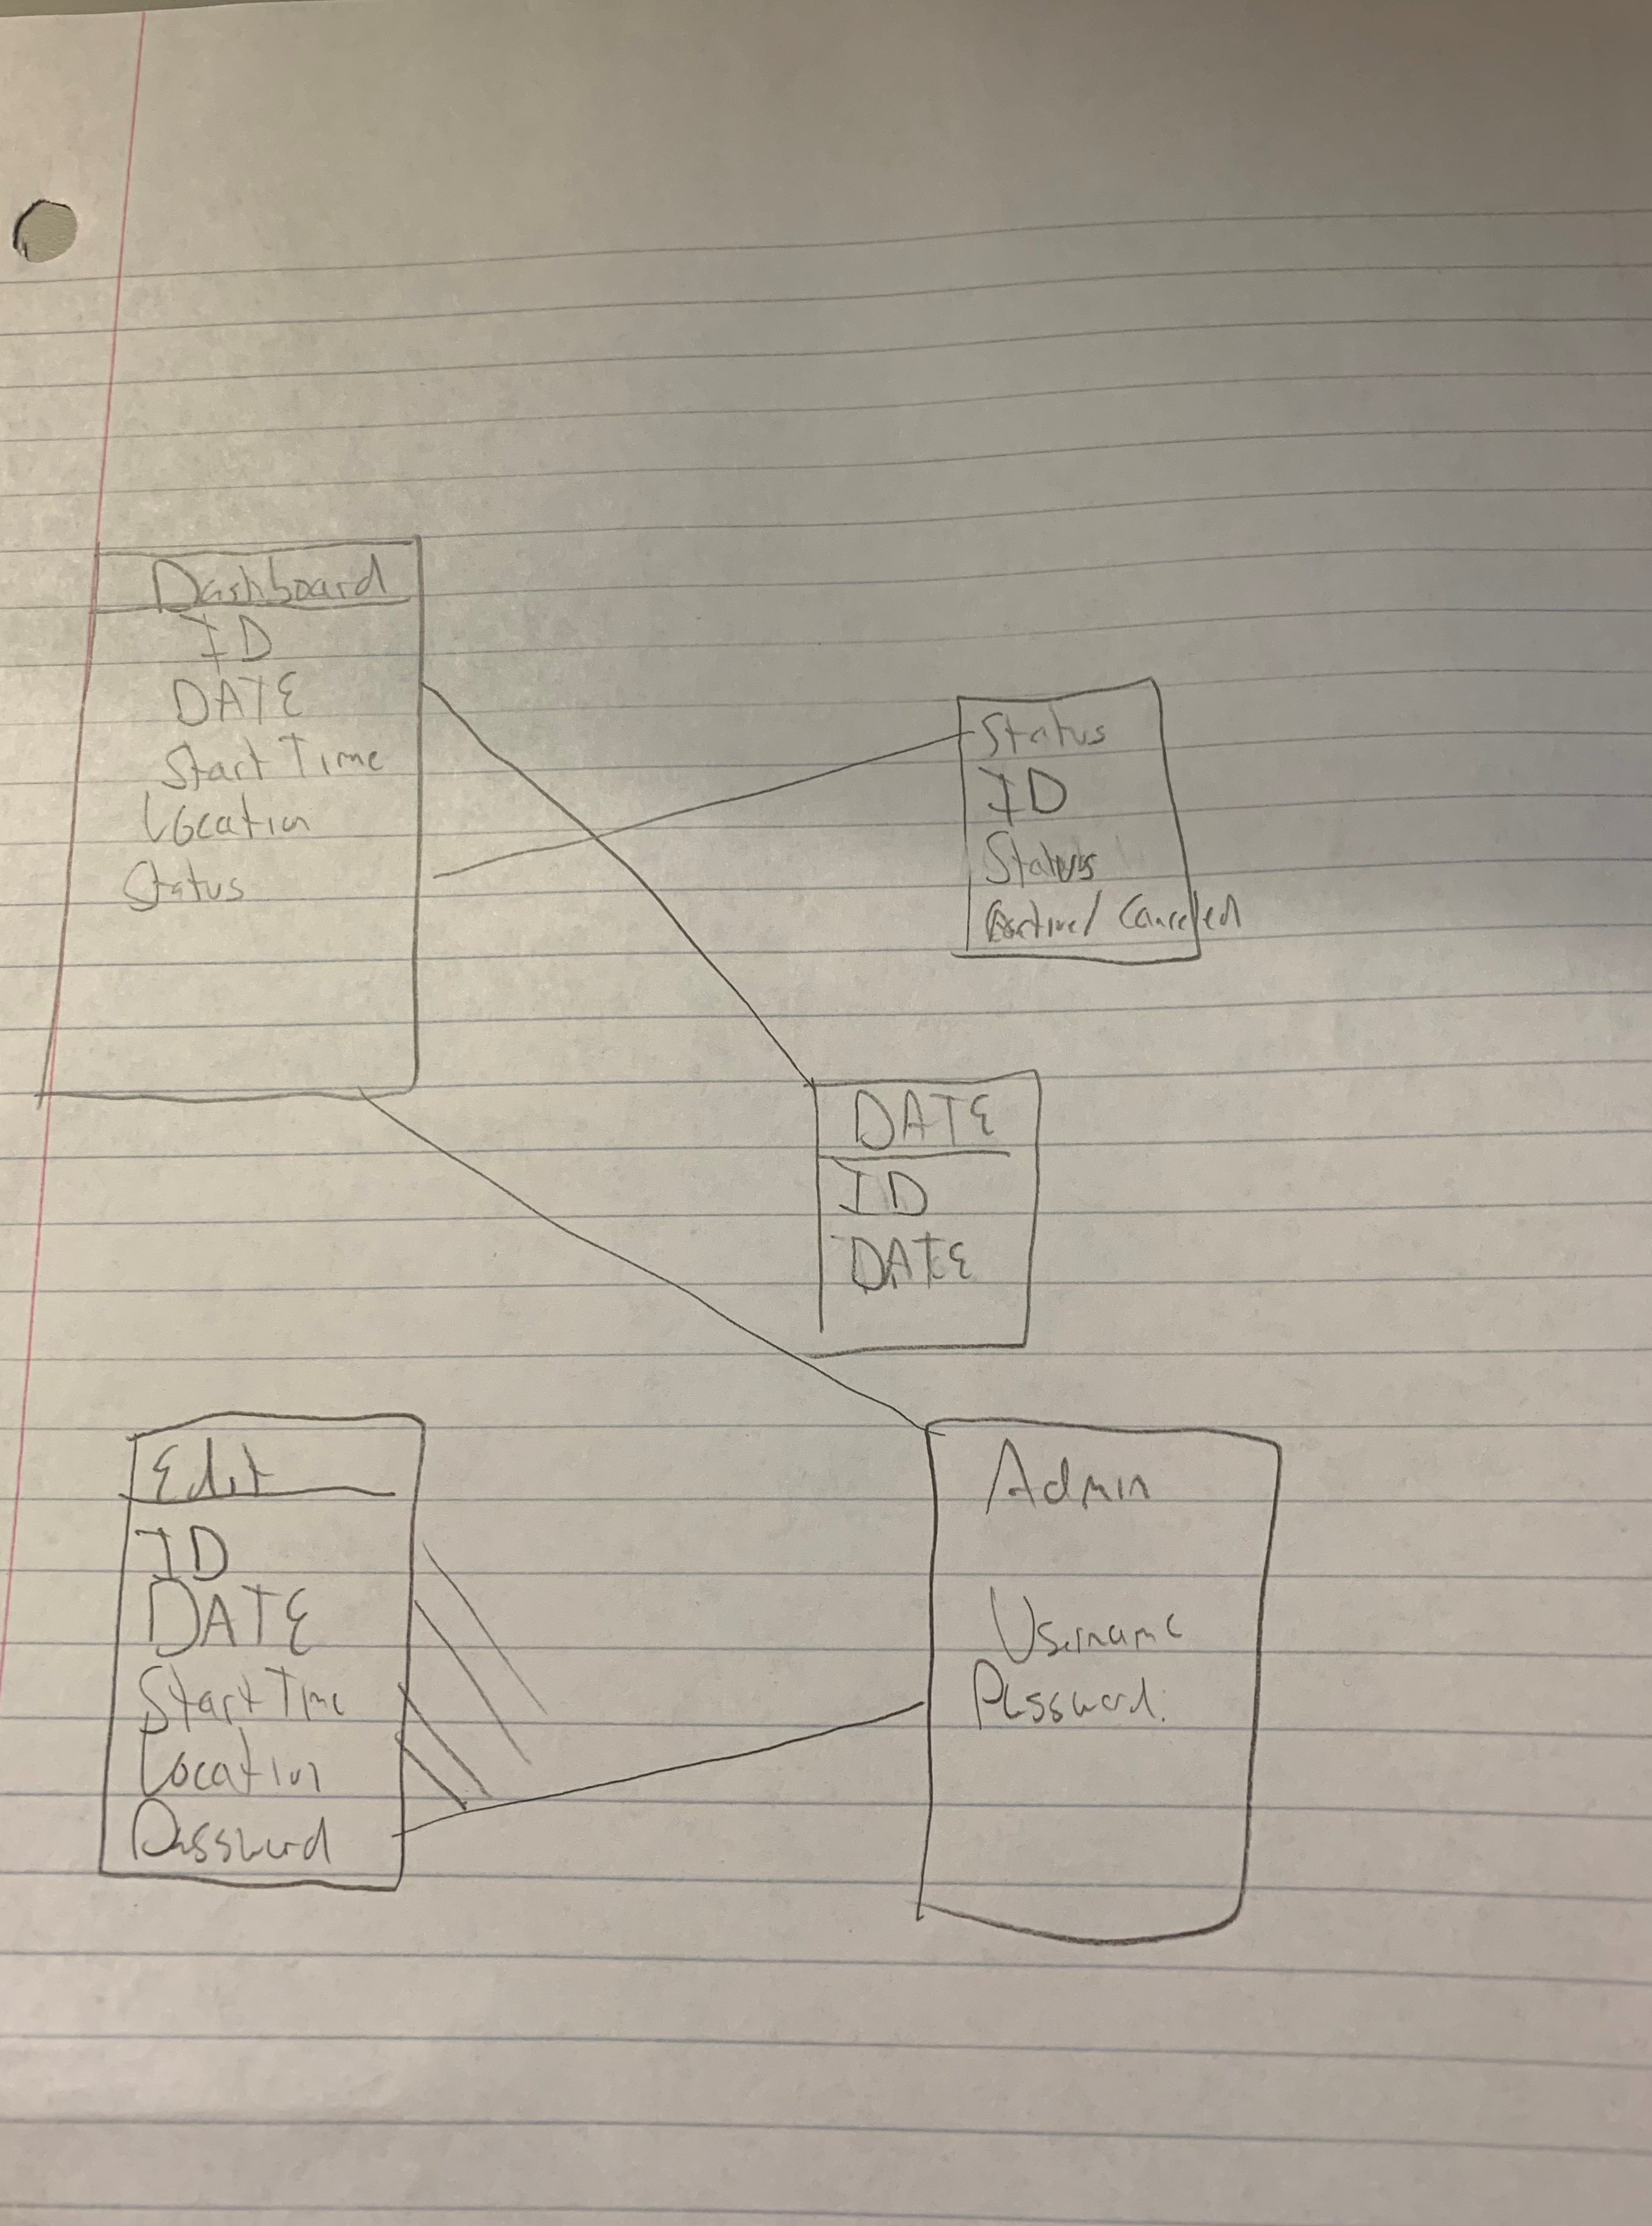 Dashboard
ID
DATE
Start Time
Location
Status
Status
ID
Status
Active/ Canceled
DATE
ID
DATE
Edit
ID
DATE
Start Time
Location
Password
Admin
Username
Password